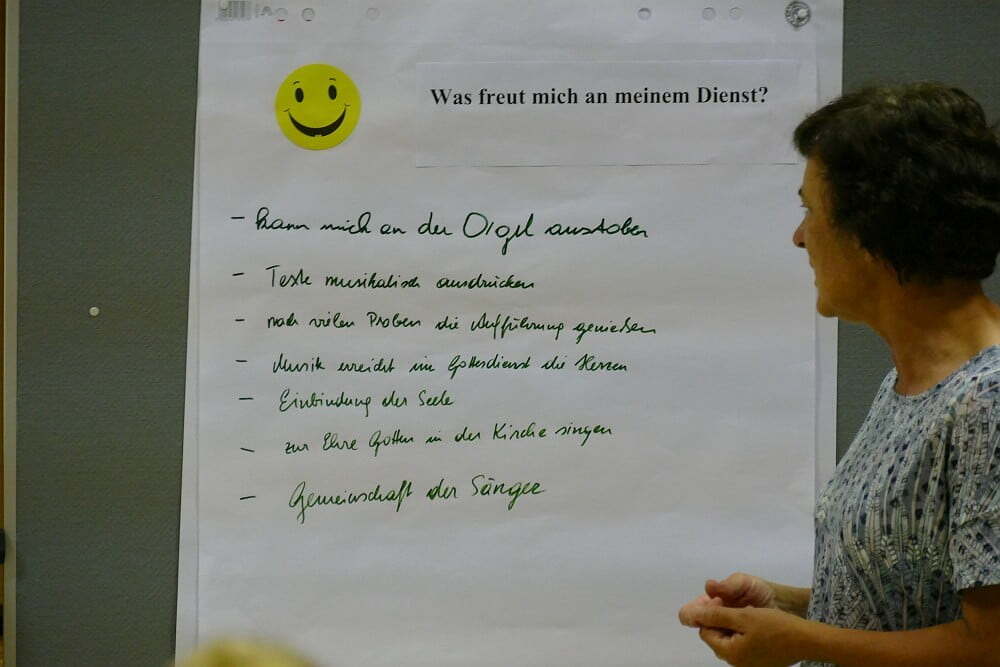 Was freut mich an meinem Dienst?
- kann mich an der Orgel austoben
- Texte musikalisch ausdrücken
- nach vielen Proben die Aufführung genießen
- Musik erreicht im Gottesdienst die Herzen
- Einbindung der Seele
- zur Ehre Gottes in der Kirche singen
- Gemeinschaft der Sänger